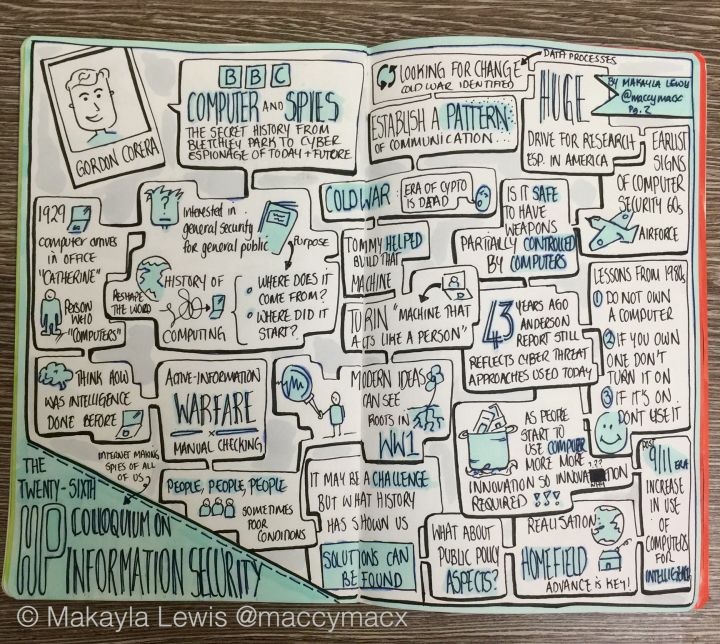 GORDON CORERA
BBC
COMPUTER AND SPIES
THE SECRET HISTORY FROM
BLETCHLEY PARK TO CYBER
ESPIONAGE OF TODAY + FUTURE
LOOKING FOR CHANGE
COLD WAR IDENTIFIED
DATA PROCESSES
ESTABLISH A PATTERN
OF COMMUNICATION...
HUGE
DRIVE FOR RESEARCH
ESP. IN AMERICA
BY MAKAYLA LEWIS
@maccymacx
Pg. 2
EARLIST
SIGNS
OF COMPUTER
SECURITY 60s
AIRFORCE
1929
computer arrives
IN OFFICE
"CATHERINE"
PERSON
WHO
"COMPUTERS"
?
Interested in
general security
for general public
PURPOSE
RESHAPE
THE WORD
HISTORY OF
COMPUTING
WHERE DOES IT
COME FROM?
WHERE DID IT
START?
COLD WAR:
ERA OF CYPTO
IS DEAD
TOMMY HELPED
BUILD THAT
MACHINE
IS IT SAFE
TO HAVE
WEAPONS
PARTIALLY CONTROLLED
BY COMPUTERS
TURIN "MACHINE THAT
ACTS LIKE A PERSON"
43 YEARS AGO
ANDERSON
REPORT STILL
REFLECTS CYBER THREAT
APPROACHES USED TODAY
LESSONS FROM 1980s
1 DO NOT OWN
A COMPUTER
2 IF YOU OWN
ONE DON'T
TURN IT ON
3 IF IT'S ON
DONT USE IT
THINK HOW
WAS INTELLIGENCE
DONE BEFORE
ACTIVE-INFORMATION
WARFARE
MANUAL CHECKING
MODERN IDEAS
CAN SEE
ROOTS IN
WW1
AS PEOPLE
START TO
USE COMPUTER
MORE MORE
INNOVATION SO
REQUIRED
INTERNET MAKING
SPIES OF ALL
OF US
PEOPLE, PEOPLE, PEOPLE
SOMETIMES
POOR
CONDITIONS
IT MAY BE A CHALLENGE
BUT WHAT HISTORY
HAS SHOWN US
SOLUTIONS CAN
BE FOUND
WHAT ABOUT
PUBLIC POLICY
ASPECTS?
REALISATION:
HOMEFIELD
ADVANCE IS KEY!
9/11 ERA
INCREASE
IN USE
OF
COMPUTERS
FOR
INTELLIGENCE
THE
TWENTY-SIXTH
HP COLLOQUIUM ON
INFORMATION SECURITY
© Makayla Lewis @maccymacx